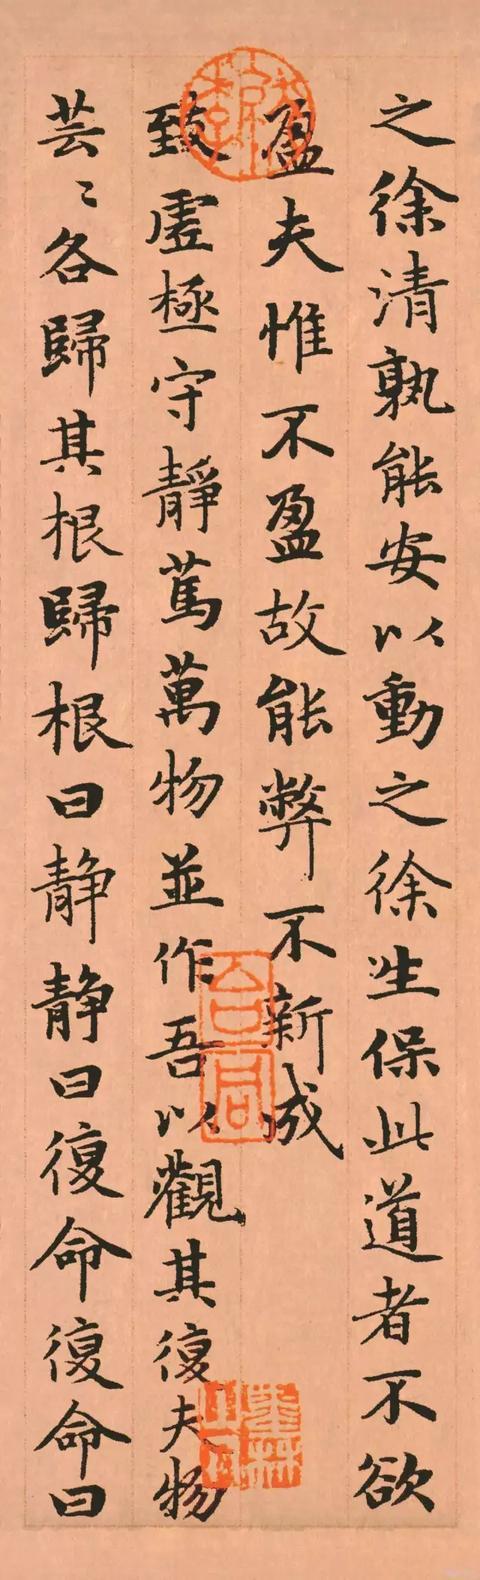 之徐清孰能安以動之徐生保此道者不欲
盈夫惟不盈故能弊不新成
致虛極守靜篤萬物並作吾以觀其復夫物
芸〻各歸其根歸根曰靜靜曰復命復命曰